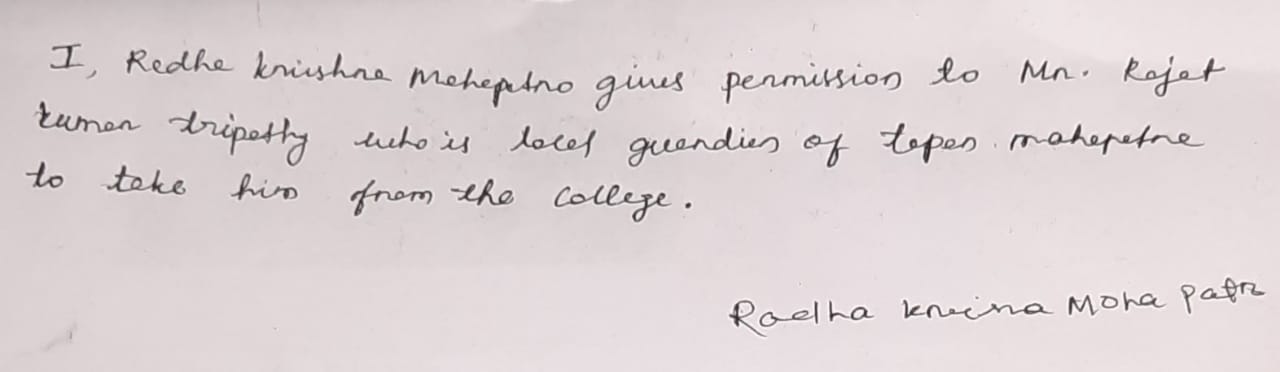 I, Radha krushna Mahapatro gives permission to Mr. Rajat
kumar tripathy who is local guardian of tapan mahapatra
to take him from the college.
Radha krusna Moha patr